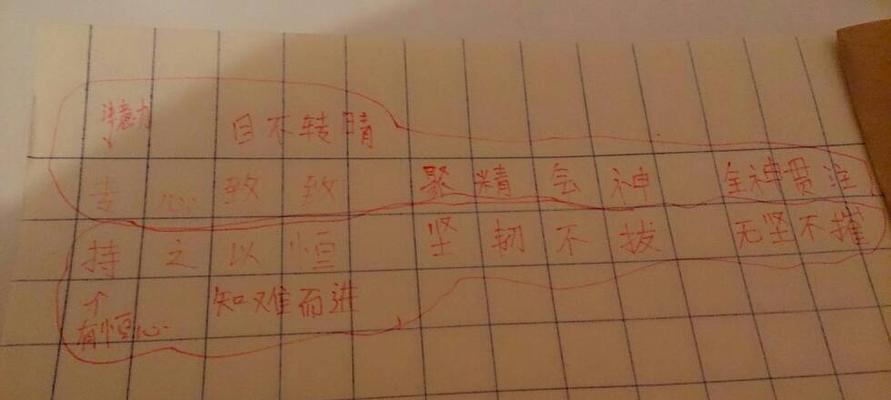 注意力 目不转睛
专心致致 聚精会神 全神贯注
持之以恒 坚韧不拔 无坚不摧
有恒心 知难而进